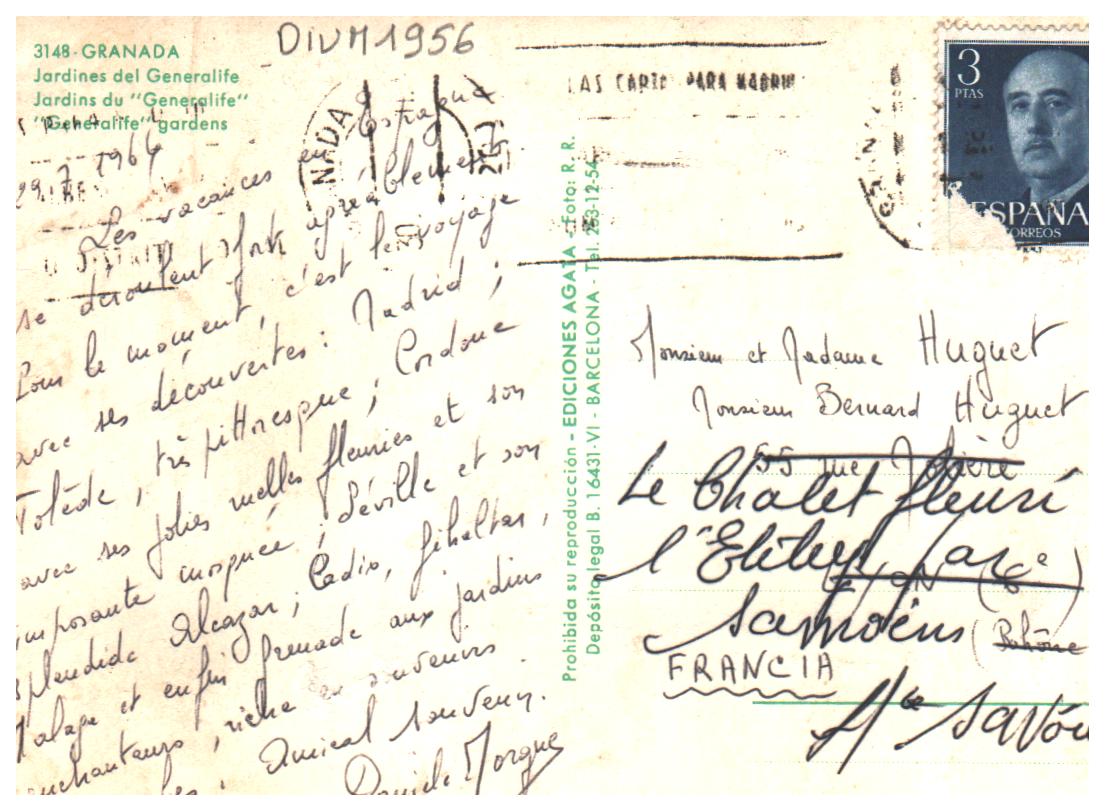 DIVM1956
3148 - GRANADA
Jardines del Generalife
Jardins du "Generalife"
"Generalife" gardens
29.7.1964
Les vacances en Espagne
se déroulent après Clément.
Pour le moment, c'est le voyage
avec ses découvertes : Madrid ;
Tolède, très pittoresque ; Cordoue
avec ses jolies ruelles fleuries et son
imposante mosquée ; Séville et son
splendide Alcazar ; Cadix, Gibraltar,
Malaga et enfin Grenade aux jardins
enchanteurs, riche en souvenirs
Amical souvenir.
Danièle Morgue
Prohibida su reproducción - EDICIONES AGATA - Foto: R. R.
Depósito legal B. 16431-VI - BARCELONA - Tel. 253-12-54
NADA
LAS CARTAS PARA MADRID
3
PTAS
ESPAÑA
CORREOS
Monsieur et Madame Huguet
Monsieur Bernard Huguet
55 rue Molière
Le Chalet fleuri
LYON (6e)
Samoëns
(Rhône
FRANCIA
Hte Savoie